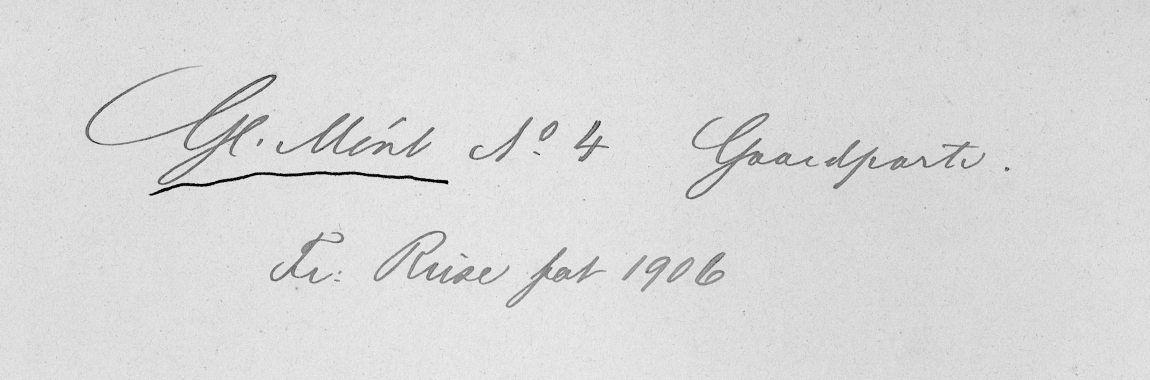 Gl. Mønt No. 4 Gaardparti.
Fr: Riise fot 1906